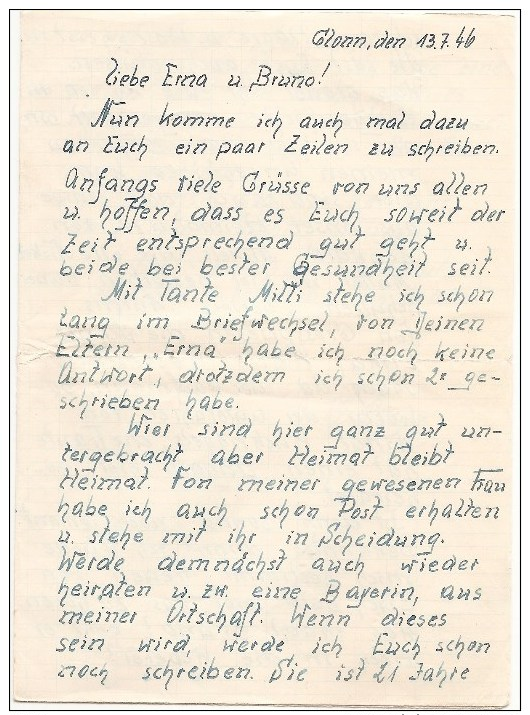 Glonn, den 13.7.46
Liebe Erna u. Bruno!
Nun komme ich auch mal dazu
an Euch ein paar Zeilen zu schreiben.
Anfangs viele Grüsse von uns allen
u. hoffen, dass es Euch soweit der
Zeit entsprechend gut geht u.
beide bei bester Gesundheit seit.
Mit Tante Milli stehe ich schon
lang im Briefwechsel, von Deinen
Eltern, „Erna" habe ich noch keine
Antwort, drotzdem ich schon 2x ge-
schrieben habe.
Wier sind hier ganz gut un-
tergebracht aber Heimat bleibt
Heimat. Von meiner gewesenen Frau
habe ich auch schon Post erhalten
u. stehe mit ihr in Scheidung.
Werde demnächst auch wieder
heiraten u. zw. eine Bayerin, aus
meiner Ortschaft. Wenn dieses
sein wird, werde ich Euch schon
noch schreiben. Sie ist 21 Jahre